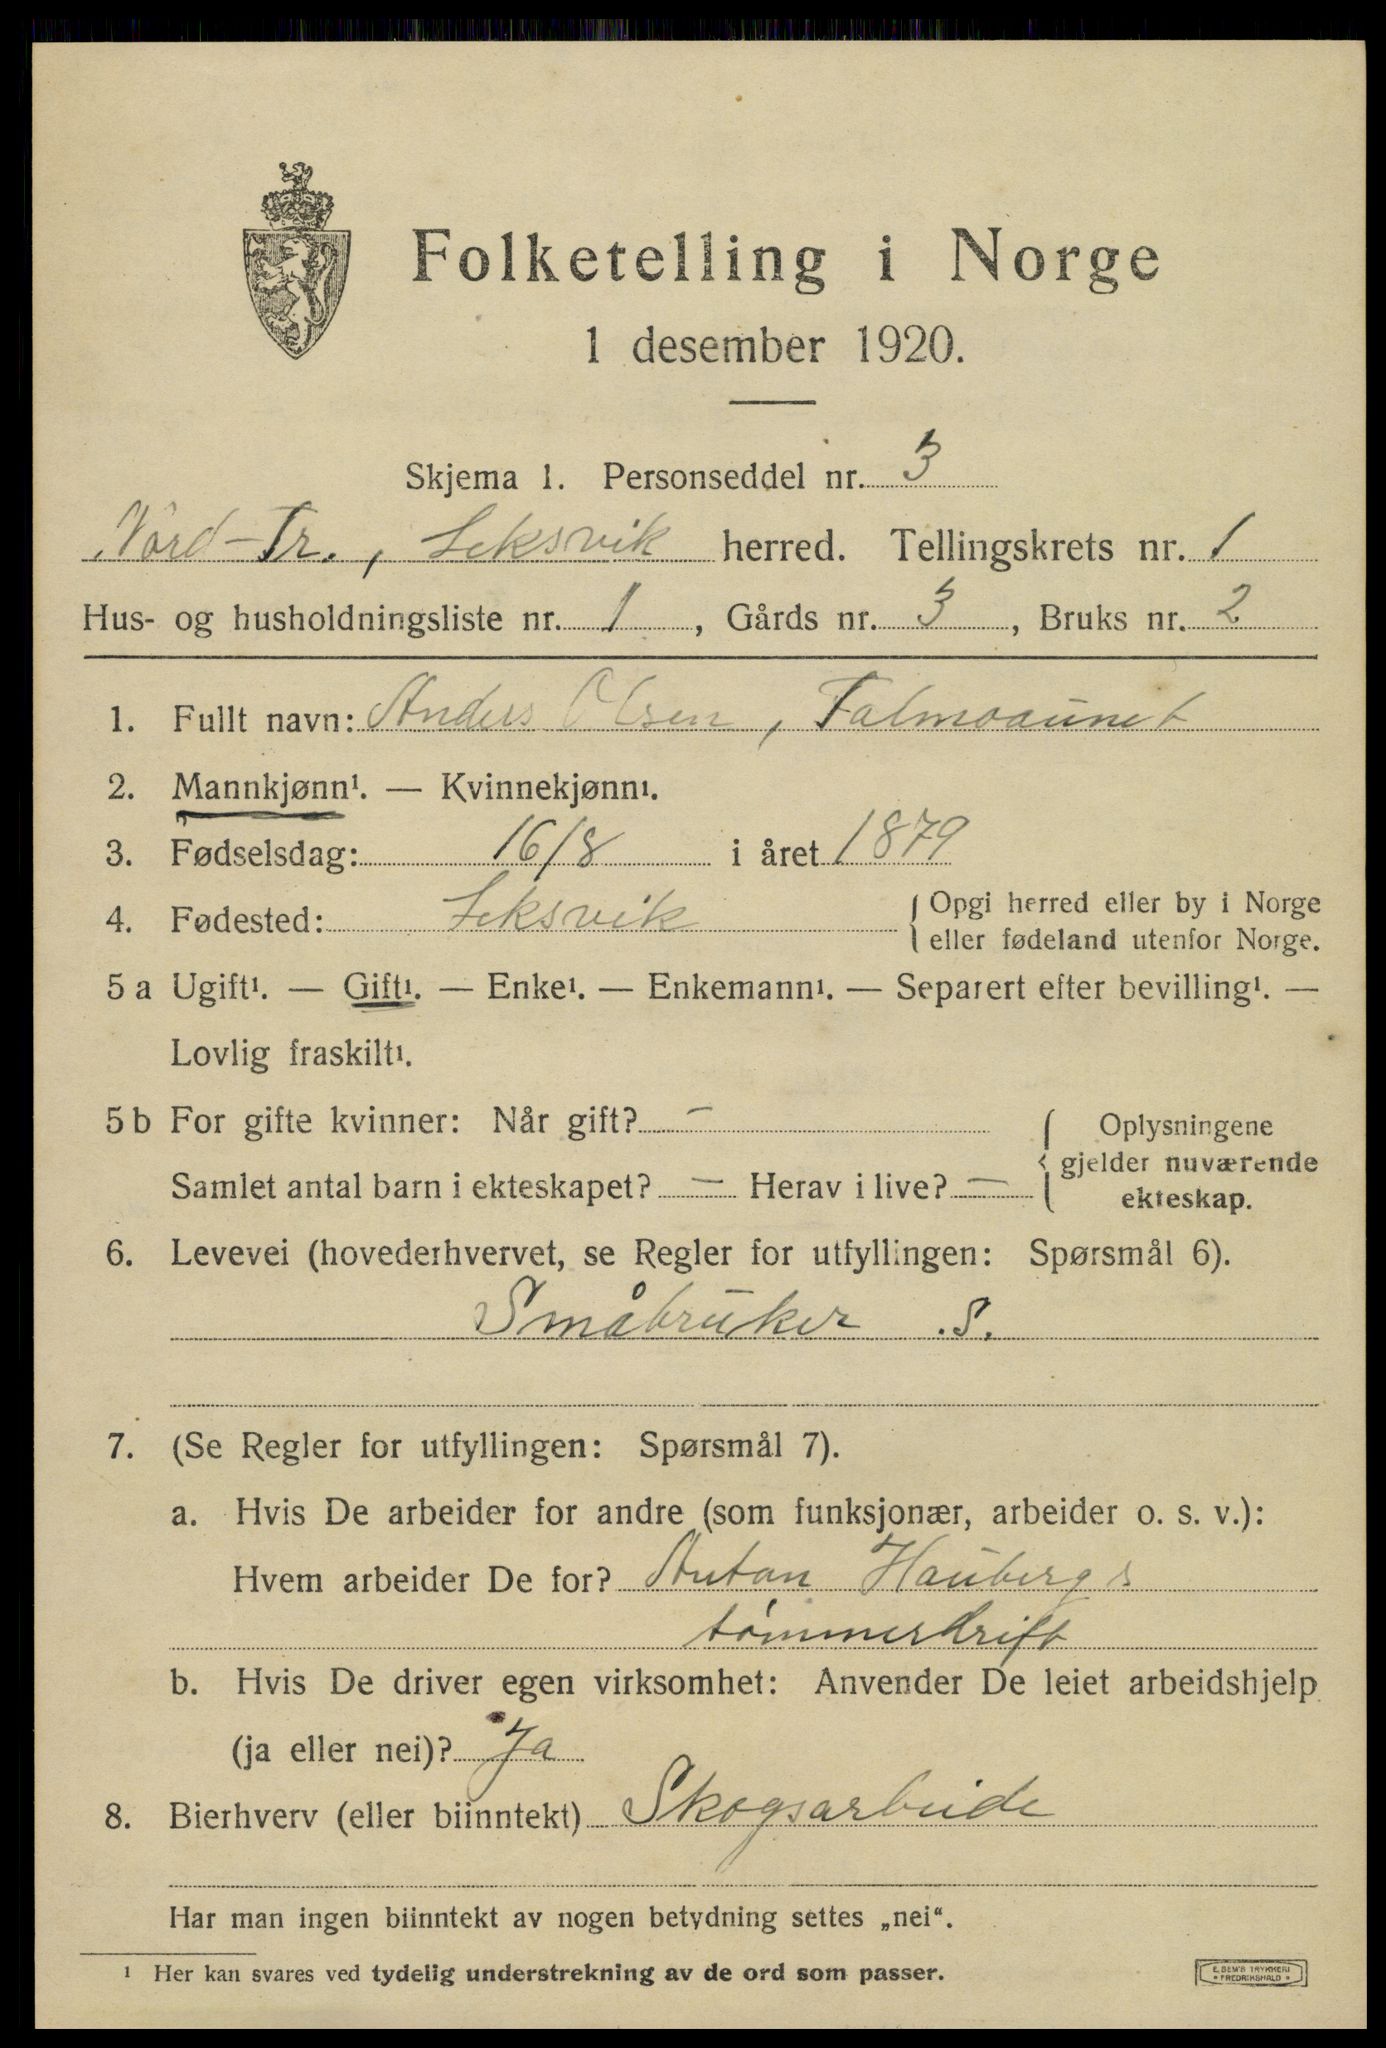 Folketelling i Norge
1 desember 1920.
Skjema 1. Personseddel nr. 3
Nord-Tr., Leksvik herred. Tellingskrets nr. 1
Hus- og husholdningsliste nr. 1, Gårds nr. 3, Bruks nr. 2
1. Fullt navn: Anders Olsen, Falmoaunet
2. Mannkjønn¹. — Kvinnekjønn¹.
3. Fødselsdag: 16/8 i året 1879
4. Fødested: Leksvik { Opgi herred eller by i Norge
eller fødeland utenfor Norge.
5 a Ugift¹. — Gift¹. — Enke¹. — Enkemann¹. — Separert efter bevilling¹. —
Lovlig fraskilt¹.
5 b For gifte kvinner: Når gift? — { Oplysningene
gjelder nuværende
Samlet antal barn i ekteskapet? — Herav i live? —
ekteskap.
6. Levevei (hovederhvervet, se Regler for utfyllingen: Spørsmål 6).
Småbruker .S.
7. (Se Regler for utfyllingen: Spørsmål 7).
a. Hvis De arbeider for andre (som funksjonær, arbeider o. s. v.):
Hvem arbeider De for? Anton Haubergs
tømmerdrift
b. Hvis De driver egen virksomhet: Anvender De leiet arbeidshjelp
(ja eller nei)? Ja
8. Bierhverv (eller biinntekt) Skogsarbeide
Har man ingen biinntekt av nogen betydning settes „nei“.
¹ Her kan svares ved tydelig understrekning av de ord som passer.
E. SEM'S TRYKKERI
FREDRIKSHALD